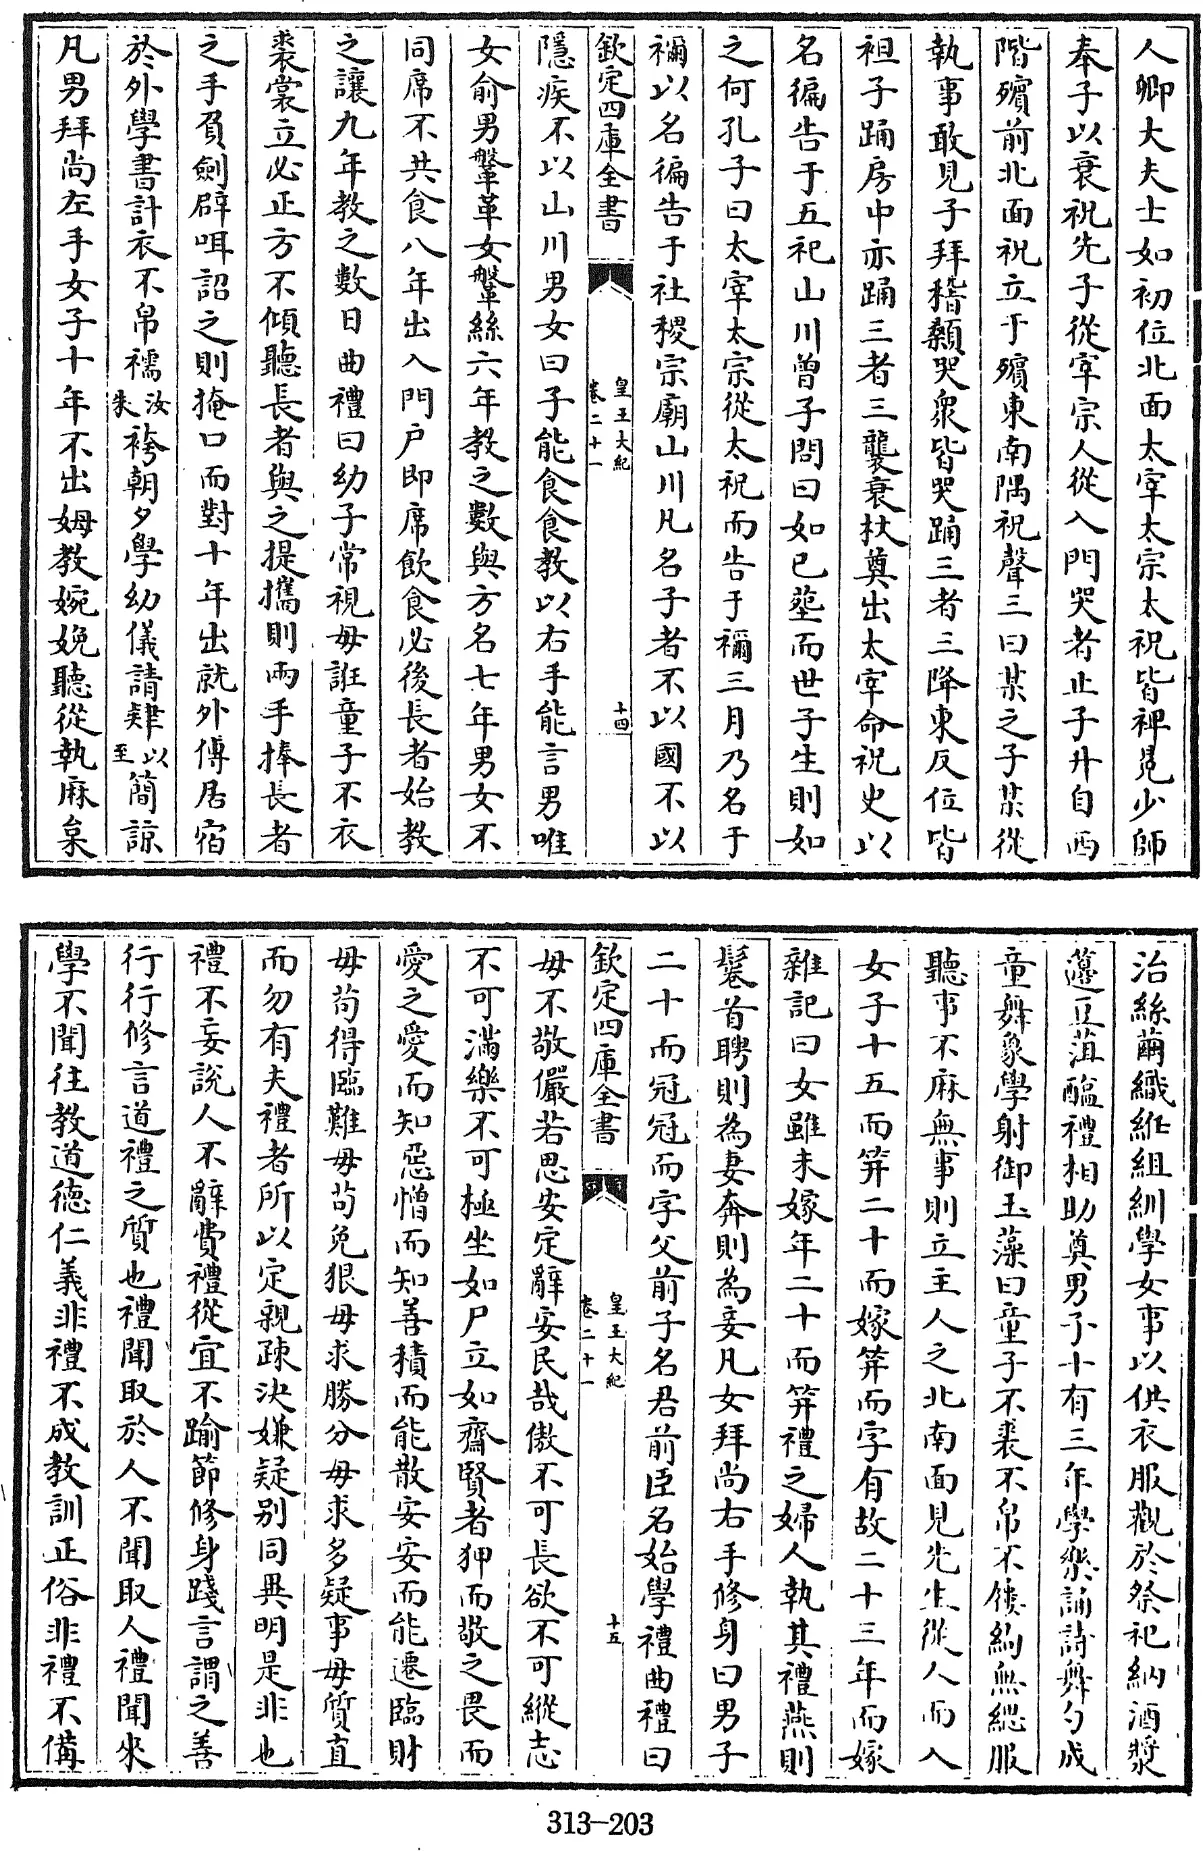 人卿大夫士如初位北面太宰太宗太祝皆裨冕少師
奉子以衰祝先子從宰宗人從入門哭者止子升自西
階殯前北面祝立于殯東南隅祝聲三曰某之子某從
執事敢見子拜稽顙哭衆皆哭踊三者三降東反位皆
袒子踊房中亦踊三者三襲衰杖奠出太宰命祝史以
名徧告于五祀山川曾子問曰如已塟而世子生則如
之何孔子曰太宰太宗從太祝而告于禰三月乃名于
禰以名徧告于社稷宗廟山川凡名子者不以國不以
欽定四庫全書
皇王大紀
卷二十一
十四
隱疾不以山川男女曰子能食食教以右手能言男唯
女俞男鞶革女鞶絲六年教之數與方名七年男女不
同席不共食八年出入門户即席飲食必後長者始教
之讓九年教之數日曲禮曰幼子常視毋誑童子不衣
裘裳立必正方不傾聽長者與之提攜則兩手捧長者
之手負劍辟咡詔之則掩口而對十年出就外傅居宿
於外學書計衣不帛襦汝朱袴朝夕學幼儀請肄以至簡諒
凡男拜尚左手女子十年不出姆教婉娩聽從執麻枲
治絲繭織紝組紃學女事以供衣服觀於祭祀納酒漿
籩豆菹醢禮相助奠男子十有三年學樂誦詩舞勺成
童舞象學射御玉藻曰童子不裘不帛不屨絇無緦服
聽事不麻無事則立主人之北南面見先生從人而入
女子十五而笄二十而嫁笄而字有故二十三年而嫁
雜記曰女雖未嫁年二十而笄禮之婦人執其禮燕則
鬈首聘則為妻奔則為妾凡女拜尚右手修身曰男子
二十而冠冠而字父前子名君前臣名始學禮曲禮曰
欽定四庫全書
皇王大紀
卷二十一
十五
毋不敬儼若思安定辭安民哉傲不可長欲不可縱志
不可滿樂不可極坐如尸立如齋賢者狎而敬之畏而
愛之愛而知惡憎而知善積而能散安安而能遷臨財
毋苟得臨難毋苟免狠毋求勝分毋求多疑事毋質直
而勿有夫禮者所以定親疎決嫌疑别同異明是非也
禮不妄説人不辭費禮從宜不踰節修身踐言謂之善
行行修言道禮之質也禮聞取於人不聞取人禮聞來
學不聞往教道德仁義非禮不成教訓正俗非禮不備
313-203